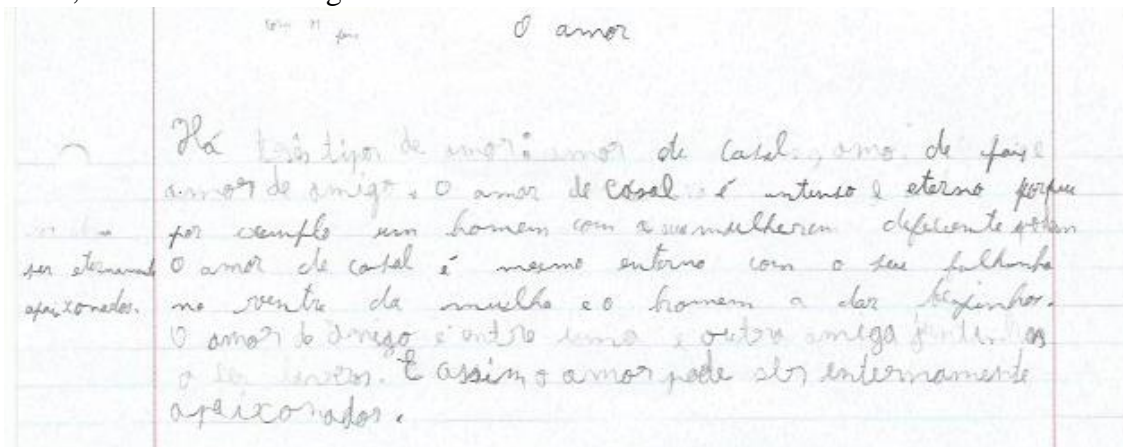 O amor
Há três tipos de amor: amor de casal, amo de pais e
amor de amigo. O amor de casal é intenso e eterno porque
por exemplo um homem com a sua mulher deficiente podem
ser eternament
apaixonados.
O amor de casal é mesmo enterno com o seu
no ventre da mulhe e o homem a dar beijinhos.
O amor de amigo é entre uma e outra amiga juntinhas
a ler E assim o amor pode ser internamente
apaixonados.